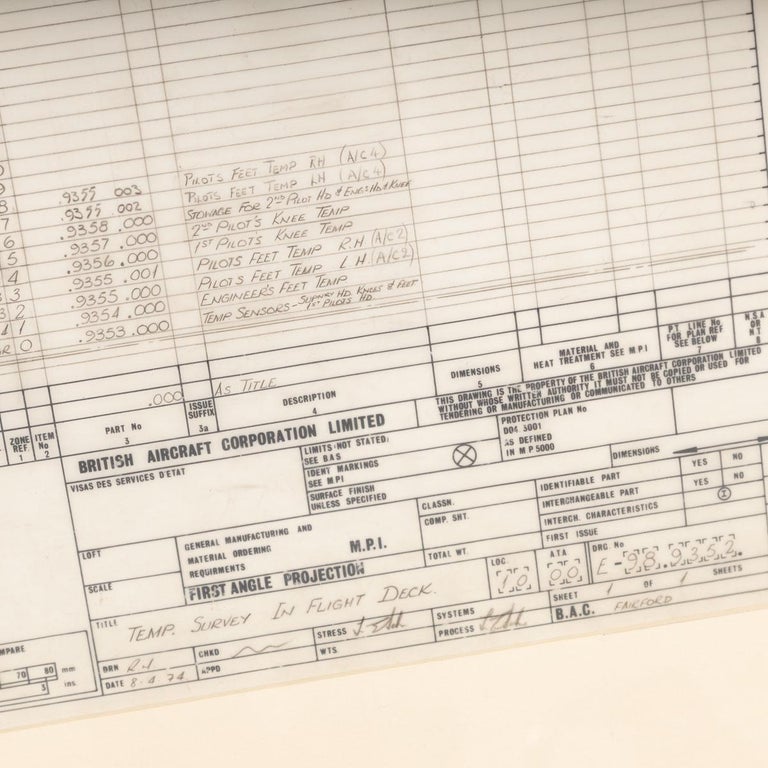 9
8 .9355 003 PILOTS FEET TEMP RH (A/C 4)
7 .9355 002 PILOTS FEET TEMP LH (A/C 4)
6 .9358 .000 STOWAGE FOR 2ND PILOT HD & ENGS HD & KNEE
5 .9357 .000 2ND PILOT'S KNEE TEMP
4 .9356.000 1ST PILOT'S KNEE TEMP
3 .9355 .001 PILOTS FEET TEMP R.H (A/C 2)
2 .9355.000 PILOTS FEET TEMP L H. (A/C 2)
1 .9354 .000 ENGINEER'S FEET TEMP
0 .9353.000 TEMP SENSORS - SUPNRY HD. KNEES & FEET
1ST PILOTS HD.
.000 AS TITLE
ZONE REF. 1
ITEM No 2
PART No 3
ISSUE SUFFIX 3a
DESCRIPTION 4
DIMENSIONS 5
MATERIAL AND
HEAT TREATMENT SEE M P I
6
P.T. LINE No
FOR PLAN REF
SEE BELOW
7
N.S.A
OR
N T
8
BRITISH AIRCRAFT CORPORATION LIMITED
THIS DRAWING IS THE PROPERTY OF THE BRITISH AIRCRAFT CORPORATION LIMITED
WITHOUT WHOSE WRITTEN AUTHORITY IT MUST NOT BE COPIED OR USED FOR
TENDERING OR MANUFACTURING OR COMMUNICATED TO OTHERS
VISAS DES SERVICES D'ETAT
LIMITS (NOT STATED)
SEE B A S
IDENT MARKINGS
SEE M P I
SURFACE FINISH
UNLESS SPECIFIED
PROTECTION PLAN No
D04 3001
AS DEFINED
IN M P 5000
DIMENSIONS
CLASSN.
COMP. SHT.
TOTAL WT.
IDENTIFIABLE PART YES NO
INTERCHANGEABLE PART YES NO
INTERCH. CHARACTERISTICS
FIRST ISSUE
LOFT
SCALE
GENERAL MANUFACTURING AND
MATERIAL ORDERING
REQUIRMENTS
M.P.I.
FIRST ANGLE PROJECTION
LOC. 10
A.T.A 00
DRG. No E-98.9352.
TITLE
TEMP. SURVEY IN FLIGHT DECK.
SHEET 1 OF 1 SHEETS
DRN
CHKD
STRESS
SYSTEMS
B.A.C. FAIRFORD
DATE 8.4.74
APPD
WTS.
PROCESS
MPARE
70 80 mm
3 ins.